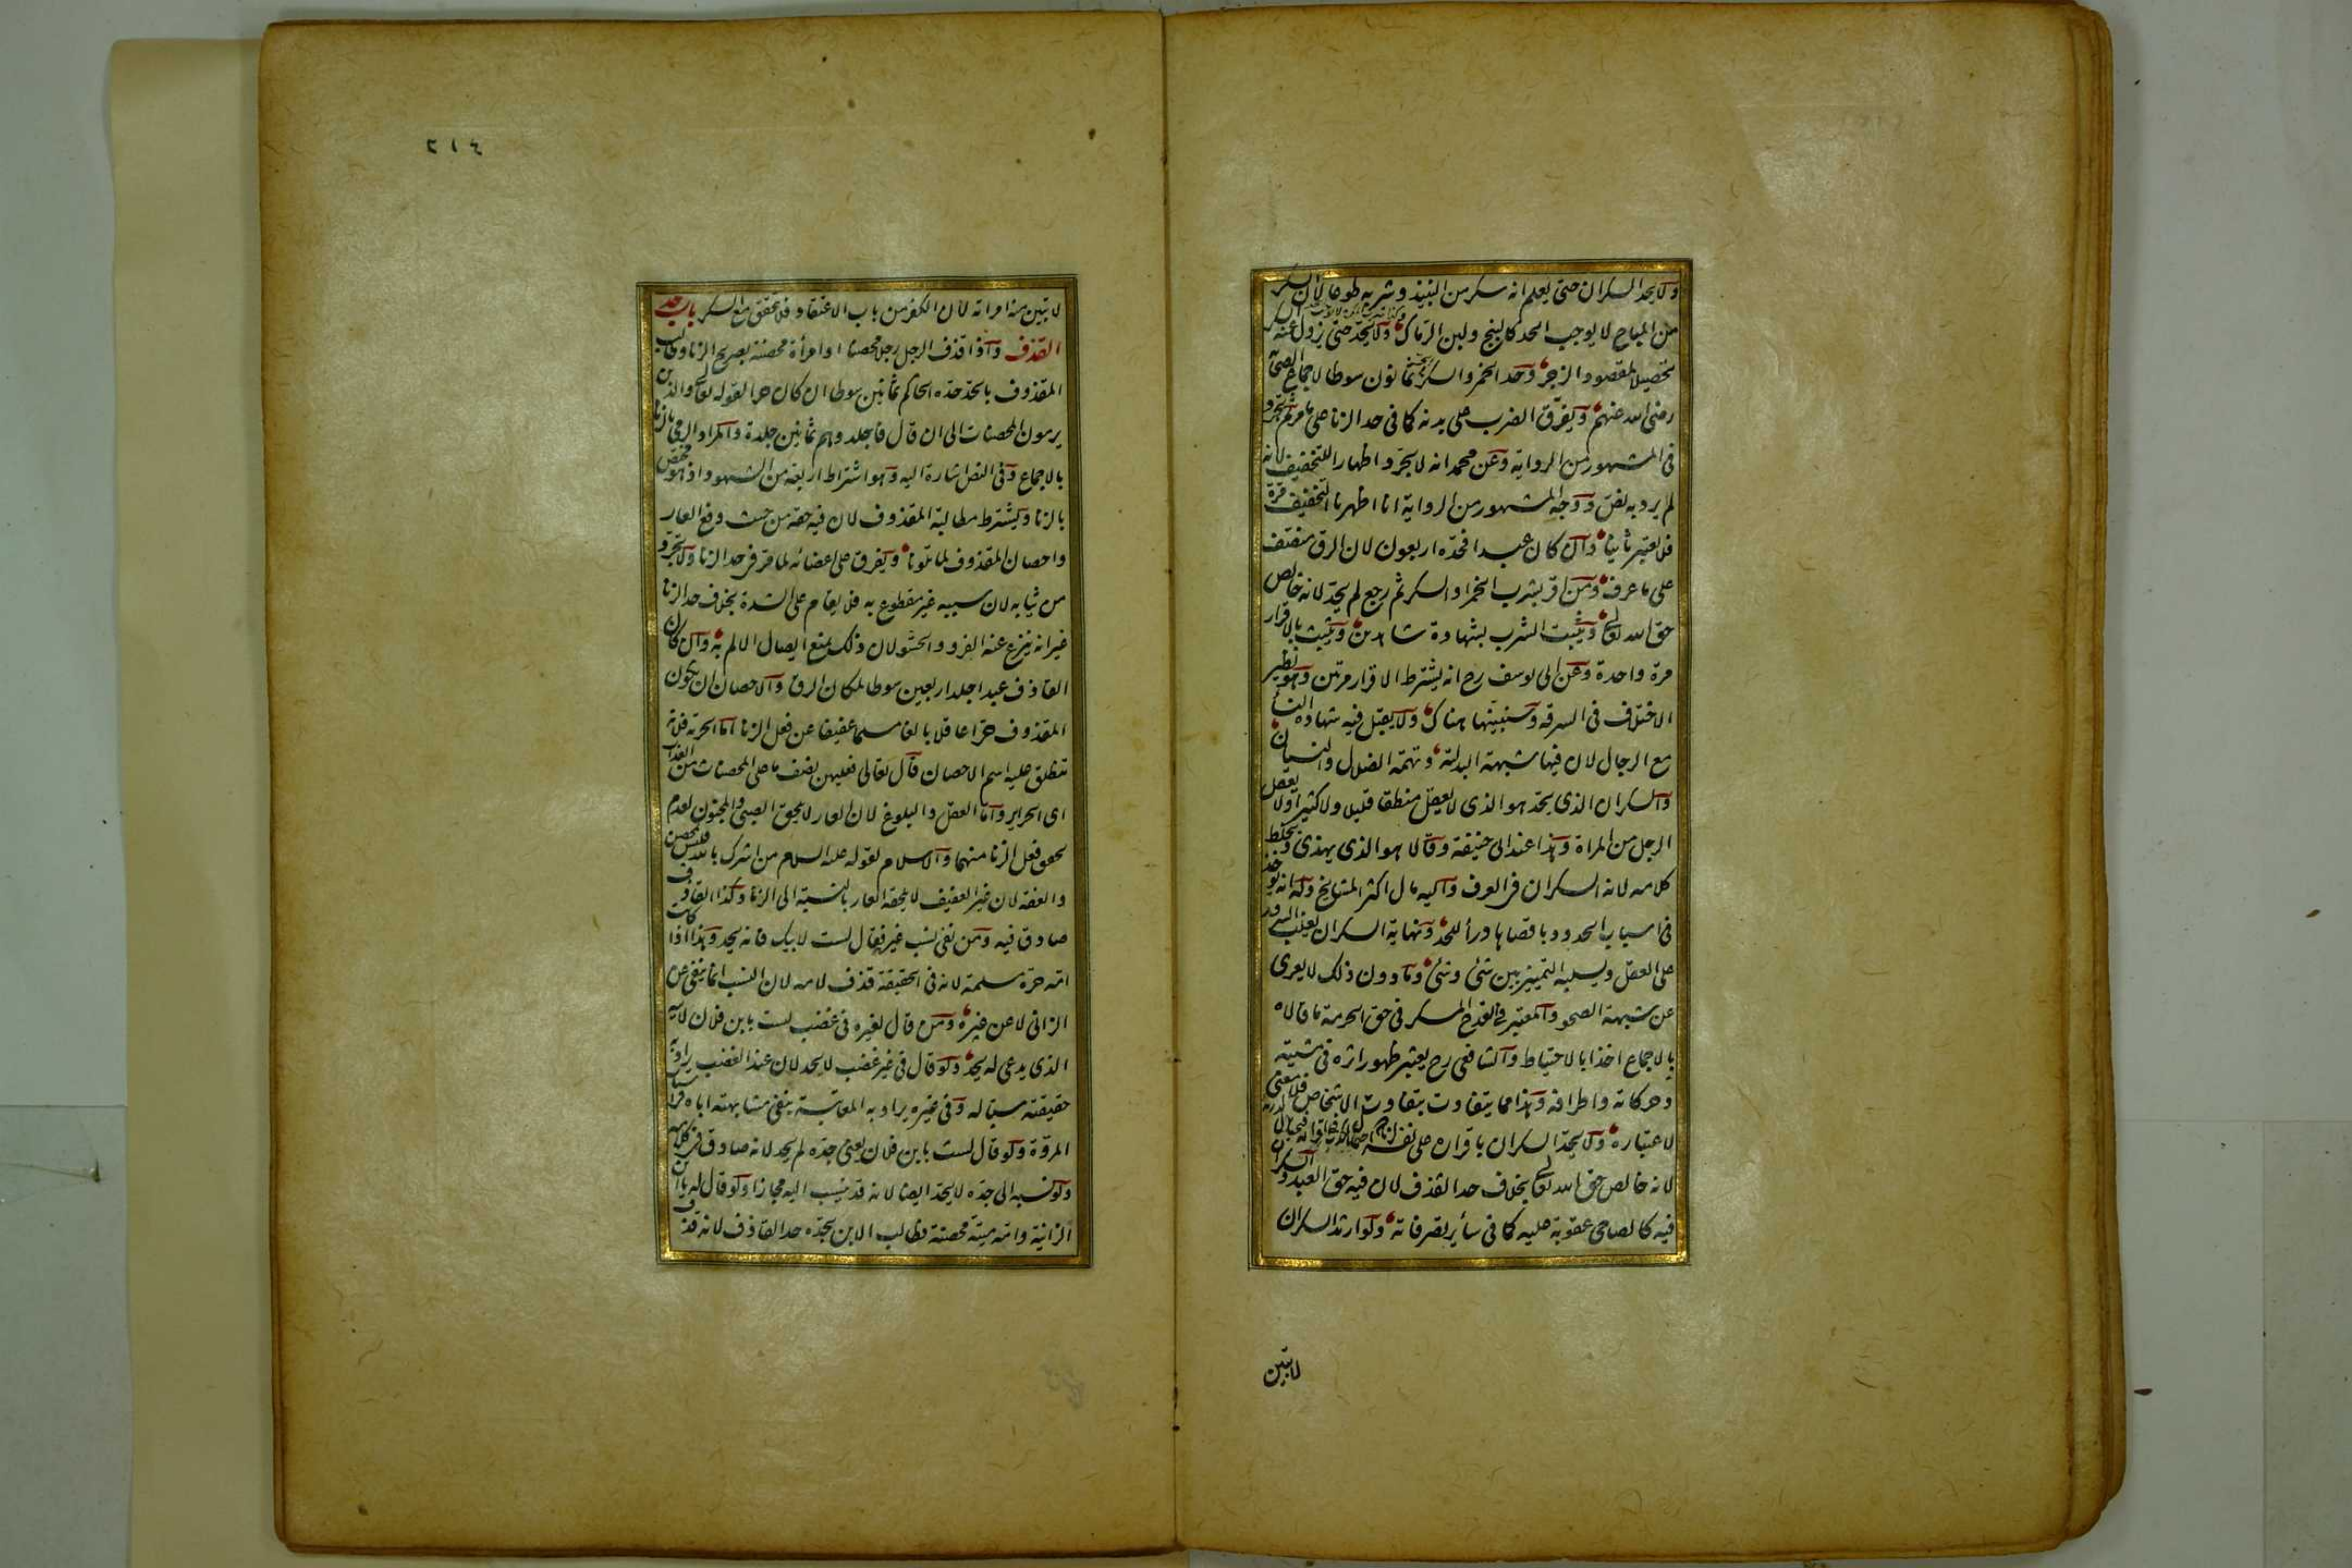 ولا يحد السكران حتى يعلم انه سكر من النبيذ وشربه طوعا لان السكر
من المباح لا يوجب الحد كالبنج ولبن الرماك ولا يحد حتى يزول عنه السكر
تحصيلا لمقصود الزجر وحد الخمر والسكر ثمانون سوطا لاجماع الصحابة
رضى الله عنهم ويفرق الضرب على بدنه كما فى حد الزنا على ما مر ثم يجرد
فى المشهور من الرواية وعن محمد انه لا يجرد اظهارا للتخفيف لانه
لم يرد به نص ووجه المشهور من الرواية انا اظهرنا التخفيف مرة
فلا يعتبر ثانيا وان كان عبدا فحده اربعون لان الرق منصف
على ما عرف ومن اقر بشرب الخمر او السكر ثم رجع لم يحد لانه خالص
حق الله تعالى ويثبت الشرب بشهادة شاهدين ويثبت بالاقرار
مرة واحدة وعن ابى يوسف رح انه يشترط الاقرار مرتين وهو نظير
الاختلاف فى السرقه وسنبينها هناك ولا يقبل فيه شهادة النساء
مع الرجال لان فيها شبهة البدلية وتهمة الضلال والنسيان
والسكران الذى يحد هو الذى لا يعقل منطقا قليلا ولا كثيرا ولا يعقل
الرجل من المراة وهذا عند ابى حنيفة وقالا هو الذى يهذى ويختلط
كلامه لانه السكران فى العرف واليه مال اكثر المشايخ وله انه يؤخذ
فى اسباب الحدود باقصاها درأ للحد ونهاية السكران يغلب السرور
على العقل ويسلبه التمييز بين شئ وشئ وما دون ذلك لا يعرى
عن شبهة الصحو والمعتبر فى القدح المسكر فى حق الحرمة ما قالاه
بالاجماع اخذا بالاحتياط والشافعى رح يعتبر ظهور اثره فى مشيته
وحركاته واطرافه وهذا مما يتفاوت بتفاوت الاشخاص فلا معنى
لاعتباره ولا يحد السكران باقراره على نفسه
لانه خالص حق الله تعالى بخلاف حد القذف لان فيه حق العبد والسكران
فيه كالصاحى عقوبة عليه كما فى سائر تصرفاته ولو ارتد السكران
لا تبين
٢١٤
لا تبين منه امراته لان الكفر من باب الاعتقاد فلا يتحقق مع السكر باب حد
القذف واذا قذف الرجل رجلا محصنا او امرأة محصنة بصريح الزنا وطالب
المقذوف بالحد حده الحاكم ثمانين سوطا ان كان حرا لقوله تعالى والذين
يرمون المحصنات الى ان قال فاجلدوهم ثمانين جلدة والمراد الرمى بالزنا
بالاجماع وفى النص اشارة اليه وهو اشتراط اربعة من الشهود اذ هو مختص
بالزنا ويشترط مطالبة المقذوف لان فيه حقه من حيث دفع العار
واحصان المقذوف لما تلونا ويفرق على اعضائه لما مر فى حد الزنا ولا يجرد
من ثيابه لان سببه غير مقطوع به فلا يقام على الشدة بخلاف حد الزنا
غير انه ينزع عنه الفرو والحشو لان ذلك يمنع ايصال الالم به وان كان
القاذف عبدا جلد اربعين سوطا لمكان الرق والاحصان ان يكون
المقذوف حرا عاقلا بالغا مسلما عفيفا عن فعل الزنا اما الحرية فلانه
ينطلق عليه اسم الاحصان قال تعالى فعليهن نصف ما على المحصنات من العذاب
اى الحراير واما العقل والبلوغ لان العار لا يلحق الصبى والمجنون لعدم
تحقق فعل الزنا منهما والاسلام لقوله عليه السلام من اشرك بالله فليس بمحصن
والعفة لان غير العفيف لا يلحقه العار بالنسبة الى الزنا وكذا القاذف
صادق فيه ومن نفى نسب غيره فقال لست لابيك فانه يحد وهذا اذا كانت
امه حرة مسلمة لانه فى الحقيقة قذف لامه لان النسب انما ينفى عن
الزانى لا عن غيره ومن قال لغيره فى غضب لست بابن فلان لابيه
الذى يدعى له يحد ولو قال فى غير غضب لا يحد لان عند الغضب يراد به
حقيقته سبا له وفى غيره يراد به المعاتبة بنفى مشابهته اباه فى اسباب
المروة ولو قال لست بابن فلان يعنى جده لم يحد لانه صادق فى كلامه
ولو نسبه الى جده لا يحد ايضا لانه قد ينسب اليه مجازا ولو قال له يا ابن
الزانية وامه ميتة محصنة فطالب الابن بحده حد القاذف لانه قذف